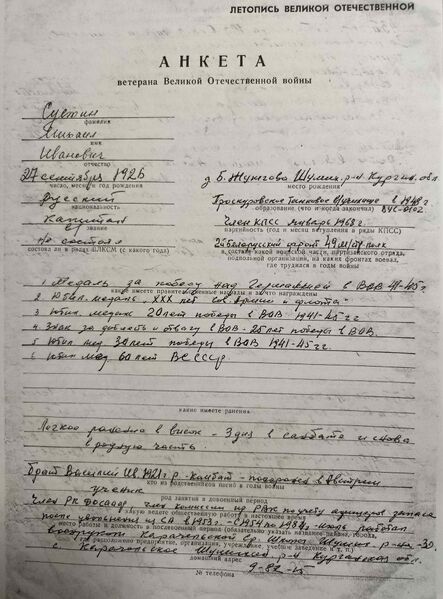 ЛЕТОПИСЬ ВЕЛИКОЙ ОТЕЧЕСТВЕННОЙ
АНКЕТА
ветерана Великой Отечественной войны
Сустин
фамилия
Михаил
имя
Иванович
отчество
27 сентября 1926
число, месяц и год рождения
д Б. Жунгово Шумих. р-н Курган. обл
место рождения
русский
национальность
Проскуровское танковое училище в 1948 г
ВУС-0102
образование (что и когда закончил)
Капитан
звание
Член КПСС январь 1968 г.
партийность (год и месяц вступления в ряды КПСС)
Не состоял
состоял ли в рядах ВЛКСМ (с какого года)
2й белорусский фронт полк
в составе какой воинской части, партизанского отряда,
подпольной организации, на каких фронтах воевал,
где трудился в годы войны
1 Медаль за победу над Германией в ВОВ 41-45 г
какие имеете правительственные награды и за что награждены
2 Юбил. медаль "XXX лет сов. армии и флота"
3 Юбил. медаль 20 лет победы в ВОВ 1941-45 г г
4 Знак за доблесть и отвагу в ВОВ - 25 лет победы в ВОВ
5 Юбил мед 30 лет победы в ВОВ 1941-45 г г.
6 Юбил мед 60 лет ВС СССР
какие имеете ранения
Легкое ранение в висок - 3 дня в санбате и снова
в родную часть
Брат Василий Ив. 1921 г р - комбат - похоронен в Австрии
кто из родственников погиб в годы войны
ученик
род занятий в довоенный период
Член РК ДОСААФ член комиссии при РВК по учету офицеров запаса
какую ведете общественную работу в настоящее время
после увольнения из СА в 1953 г. - с 1954 по 1984 г - июль работал
место работы и должность в послевоенный период (обязательно указать название района, города,
Карачельской ср. школы Шумих р-на - 30
где расположено предприятие, организация, учреждение, учебное заведение и т. п.)
с. Карачельское Шумихин р-н Курганская обл.
домашний адрес
9-32-
№ телефона